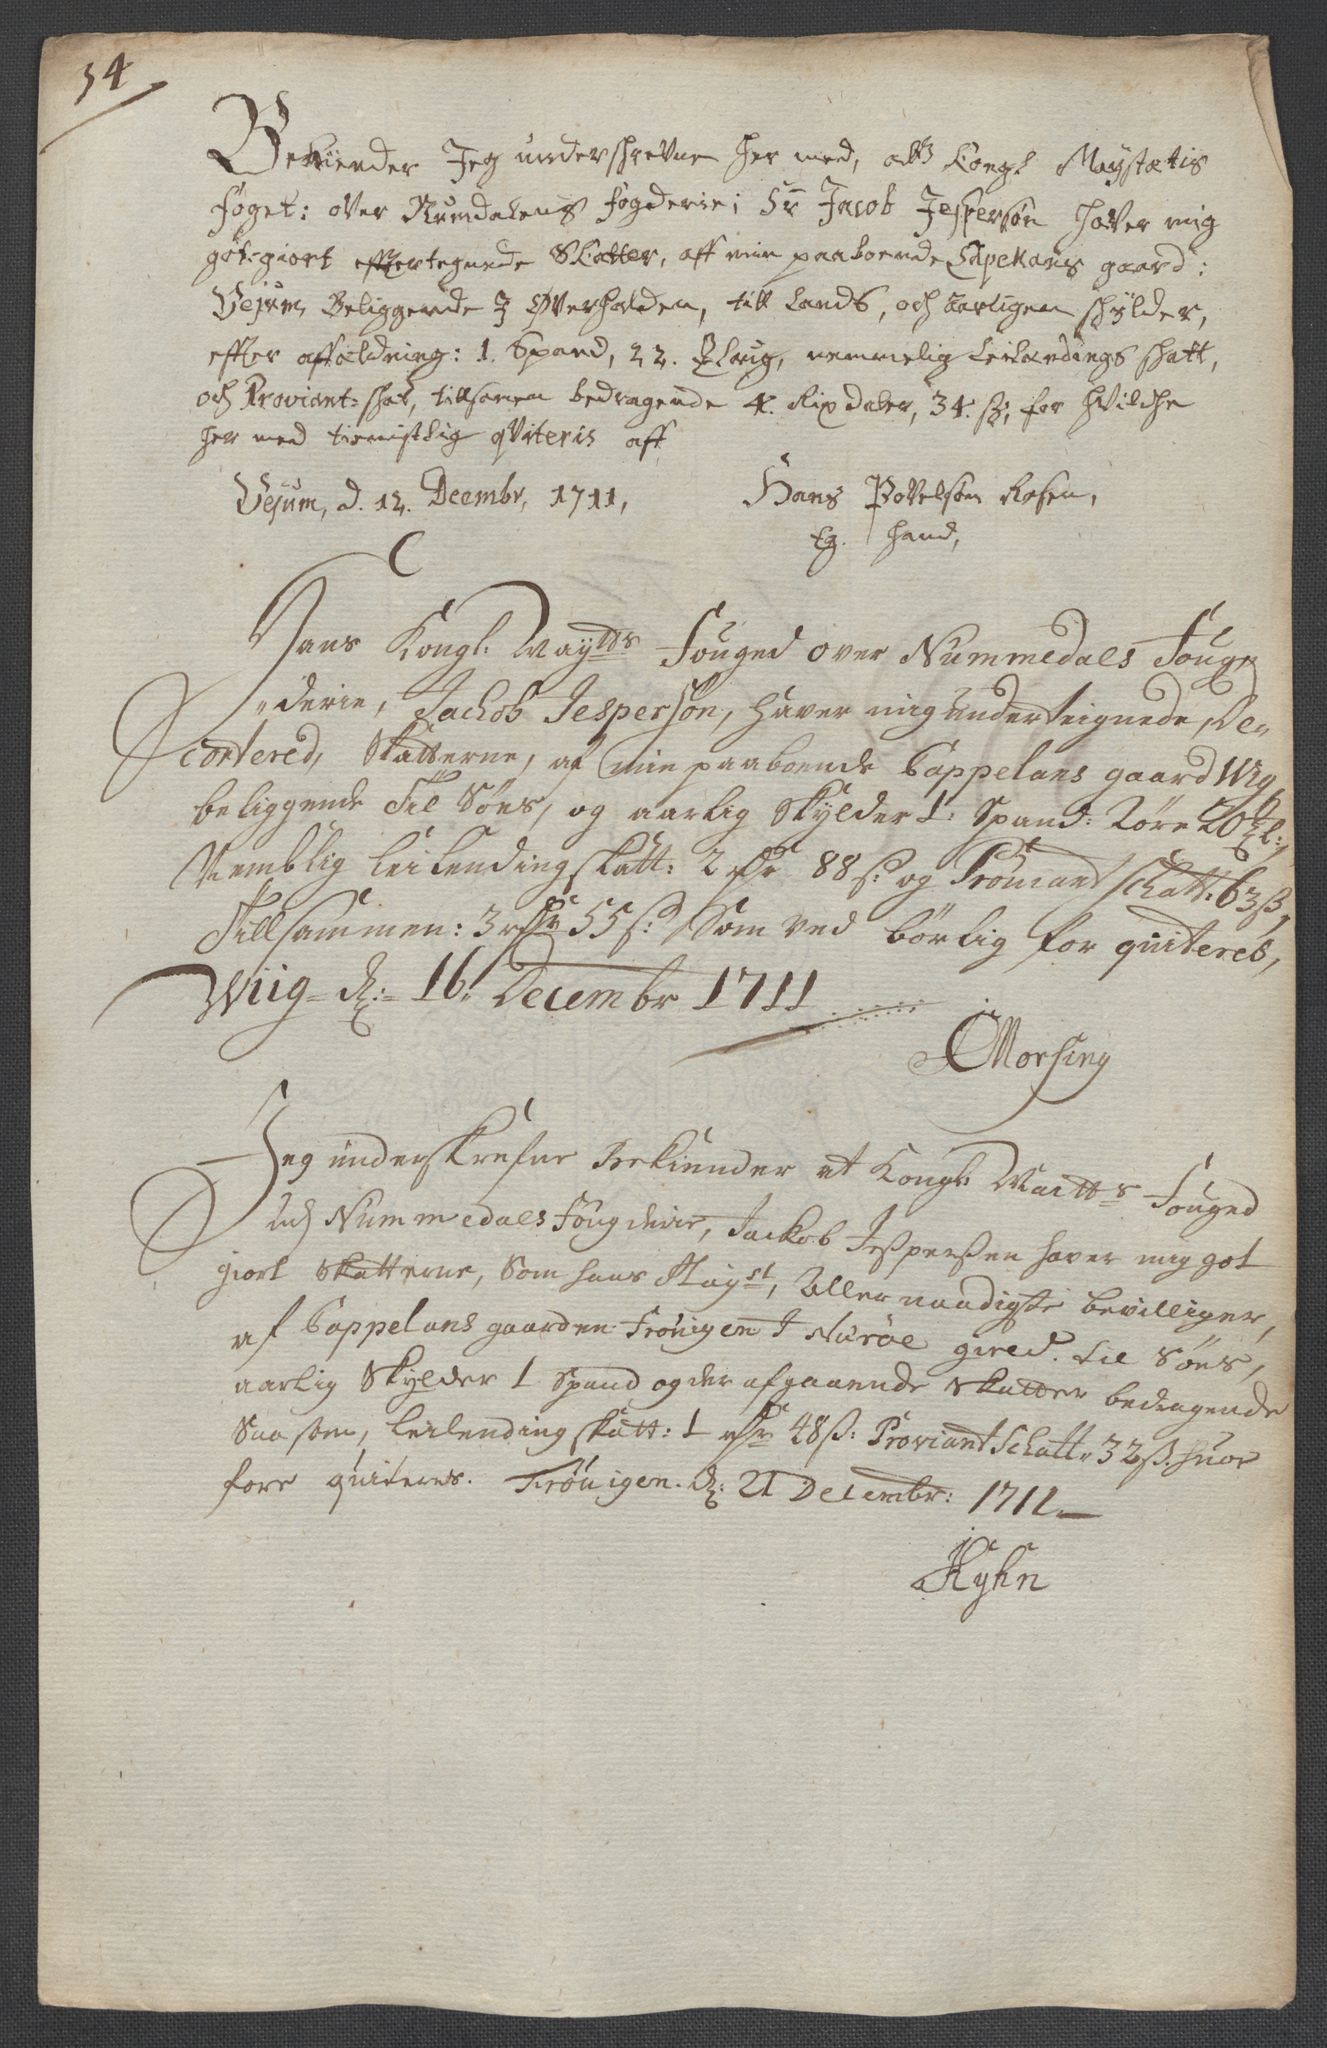 34
Bekiender Jeg underschrevne her med, att Kongl Maystætis
foget: over Numdalens fogderie; Sr Jacob Jespersøn haver mig
gotgiort effttertegnede Skatter, aff min paaboende Capelans gaard:
Vejum, Beliggende J Øverhalden, till Lands, och aarligen schylder,
effter affældning: 1. Spand, 22. Laug, nemmelig Leilændings skatt,
och Proviant-skat, tillsamen bedragende 4. Rixdaler, 34. s; for hvilche
her med tienistlig qviteris aff
Vejum, d. 12. Decembr, 1711,
Hans Povelsøn Rosen,
Eg. hand,
Hans Kongl: Maytts Fouged over Nummedals Foug
derie, Jachob Jespersøn, haver mig underteignede, De-
cortered, Skatterne, af min paaboende Cappelans gaard Wiig
beliggende Til Søes, og aarlig Skylder 1: Spand: 2øre 20 l:,
Nemblig Leilending skatt: 2 rdr 88 s: og Proviant schatt: 63 s,
Tillsammen: 3 rdr 55 s: Som ved børlig for quiteres,
Wiig d: 16. Decembr 1711
Morsing
Jeg underskrefne Bekiender at Kongl: Maitts Fouged
ud Nummedals Fougderie, Jackob Jespersen haver mig got
giort Skatterne, Som hans Mayst, Aller naadigste bevilliger,
af Cappelans gaarden Frøuigen J Nærøe gield. til Søes,
aarlig Skylder 1 Spand og der afgaaende Skatter bedragende
Saasom, Leilending skatt: 1 rdr 48 s: Proviant Schatt 32 s. huor
fore quiteres. Frøuigen. d: 21 Decembr: 1711
Kyhn